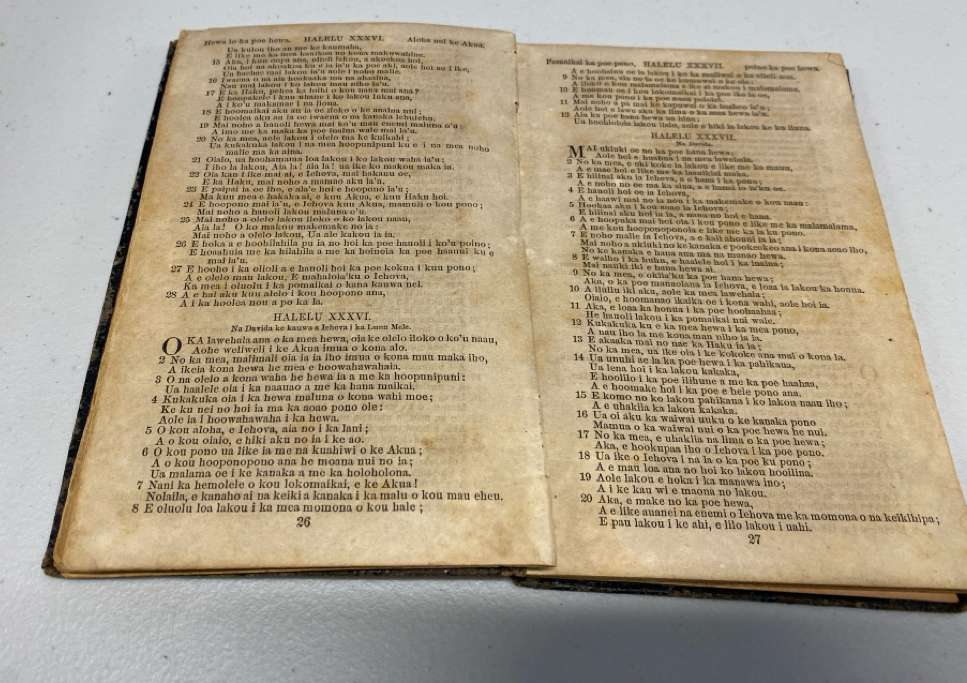 Hewa lo ka poe hewa. HALELU XXXVI. Aloha nui ke Akua.
Ua kulou iho au me ke kaumaha,
15 Aka, i kuu
Nau mai lakou i ko lakou mau niho ia'u.
17 E ka Haku, pehea la hoi o kou nana mai ana?
E hoopakele i kuu uhane i ko lakou luku ana,
A i ko'u makamae i na liona.
18 E hoomaikai aku au ia oe iloko o ke anaina nui:
E hoolea aku au ia oe iwaena o na kanaka lehulehu.
19 Mai noho a hauoli hewa mai ko'u mau enemi maluna o'u;
A imo me ka maka ka poe inaina wale mai ia'u.
20 No ka mea, aole lakou i olelo ma ke kuikahi;
Ua kukakuka lakou i na mea hoopunipuni ku e i na mea noho
malie ma ka aina.
21 Oiaio, ua hoohamama loa lakou i ko lakou waha ia'u;
I iho la lakou, Aia la! aia la! ua ike ko makou maka ia.
22 Oia kau i ike mai ai, e Iehova, mai hakanu oe,
E ka Haku, mai noho a mamao aku ia'u.
23 E paipai ia oe iho, e ala'e hoi e hoopono ia'u;
Ma kuu mea e hakaka ai, e kuu Akua, e kuu Haku hoi.
24 E hoopono mai ia'u, e Iehova kuu Akua, mamuli o kou pono;
Mai noho a hauoli lakou maluna o'u.
25 Mai noho a olelo lakou iloko o ko lakou naau,
Aia la! O ko makou makemake no ia:
Mai noho a olelo lakou, Ua ale kakou ia ia.
26 E hoka a e hoohilahila pu ia no hoi ka poe hauoli i ko'u poino;
E hoaahuia me ka hilahila a me ka hoinoia ka poe haanui ku e
mai ia'u.
27 E hooho i ka olioli a e hauoli hoi ka poe kokua i kuu pono;
A e olelo mau lakou, E mahalola'ku o Iehova,
Ka mea i oluolu i ka pomaikai o kana kauwa nei.
28 A e hai aku kuu alelo i kou hoopono ana,
A i ka hoolea nou a po ka la.
HALELU XXXVI.
Na Davida ke kauwa a Iehova i ka Luna Mele.
O KA lawehala ana o ka mea hewa, oia ke olelo iloko o ko'u naau,
Aohe weliweli i ke Akua imua o kona alo.
2 No ka mea, malimali oia ia ia iho imua o kona mau maka iho,
A ikeia kona hewa he mea e hoowahawahaia.
3 O na olelo a kona waha he hewa ia a me ka hoopunipuni:
Ua haalele oia i ka naauao a me ka hana maikai.
4 Kukakuka oia i ka hewa maluna o kona wahi moe;
Ke ku nei no hoi ia ma ka aoao pono ole:
Aole ia i hoowahawaha i ka hewa.
5 O kou aloha, e Iehova, aia no i ka lani;
A o kou oiaio, e hiki aku no ia i ke ao.
6 O kou pono ua like ia me na kuahiwi o ke Akua;
A o kou hooponopono ana he moana nui no ia;
Ua malama oe i ke kanaka a me ka holoholona.
7 Nani ka hemolele o kou lokomaikai, e ke Akua!
Nolaila, e kanaho ai na keiki a kanaka i ka malu o kou mau eheu.
8 E oluolu loa lakou i ka mea momona o kou hale;
26
Pomaikai ka poe pono, HALELU XXXVII. poino ka poe hewa.
A e hoohainu oe ia lakou i ka
9 No ka mea, aia no ia oe ka
10 E hoomau oe i kou lokomaikai i ka poe ike ia oe,
A me kou pono i ka poe naau pololei.
12 Aia ka poe hana hewa ua hina;
Ua hoohiolola lakou ilalo, aole e hiki ia lakou ke ku iluna.
HALELU XXXVII.
Na Davida.
MAI ukiuki oe no ka poe hana hewa;
Aole hoi e huahua i na mea lawehala.
2 No ka mea, e oki koke ia lakou e like me ka mauu,
A e mae hoi e like me ka laauikiai maka.
3 E hilinai aku ia Iehova, a e hana i ka pono;
A e noho no oe ma ka aina, a e hanai io ia'ku oe.
4 E hauoli hoi oe ia Iehova,
A e haawi mai no ia nou i ka makemake o kou naau:
5 Hookau aku i kou aoao ia Iehova;
E hilinai aku hoi ia ia, a nana no hoi e hana.
6 A e hoopuka mai hoi oia i kou pono e like me ka malamalama,
A me kou hooponoponoia e like me ka la ku pono.
7 E noho malie ia Iehova, a e kali ahonui ia ia;
Mai noho a ukiuki no ke kanaka e pookeokeo ana i kona aoao iho,
No ke kanaka e hana ana ma na manao hewa.
8 E waiho i ka huhu, e haalele hoi i ka inaina;
Mai nauki iki e hana hewa ai.
9 No ka mea, e okiia'ku ka poe hana hewa;
Aka, o ka poe manaolana ia Iehova, e loaa ia lakou ka honua.
10 A liuliu iki aku, aole ka mea lawehala;
Oiaio, e hoomanao ikaika oe i kona wahi, aole hoi ia.
11 Aka, e loaa ka honua i ka poe hoohaahaa;
He hauoli lakou i ka pomaikai nui wale.
12 Kukakuka ku e ka mea hewa i ka mea pono,
A nau iho la me kona mau niho ia ia.
13 E akaaka mai no nae ka Haku ia ia;
No ka mea, ua ike oia i ke kokoke ana mai o kona la.
14 Ua unuhi ae la ka poe hewa i ka pahikaua,
Ua lena hoi i ka lakou kakaka,
E hoolilo i ka poe ilihune a me ka poe haahaa,
A e hoomake hoi i ka poe e hele pono ana.
15 E komo no ko lakou pahikaua i ko lakou naau iho;
A e uhakila ka lakou kakaka.
16 Ua oi aku ka waiwai uuku o ke kanaka pono
Mamua o ka waiwai nui o ka poe hewa he nui.
17 No ka mea, e uhakiia na lima o ka poe hewa;
Aka, e hookupaa iho o Iehova i ka poe pono.
18 Ua ike o Iehova i na la o ka poe ku pono;
A e mau loa ana no hoi ko lakou hooilina.
19 Aole lakou e hoka i ka manawa ino;
A i ke kau wi e maona no lakou.
20 Aka, e make no ka poe hewa,
A e like auanei na enemi o Iehova me ka momona o na keikihipa;
E pau lakou i ke ahi, e lilo lakou i uahi.
27